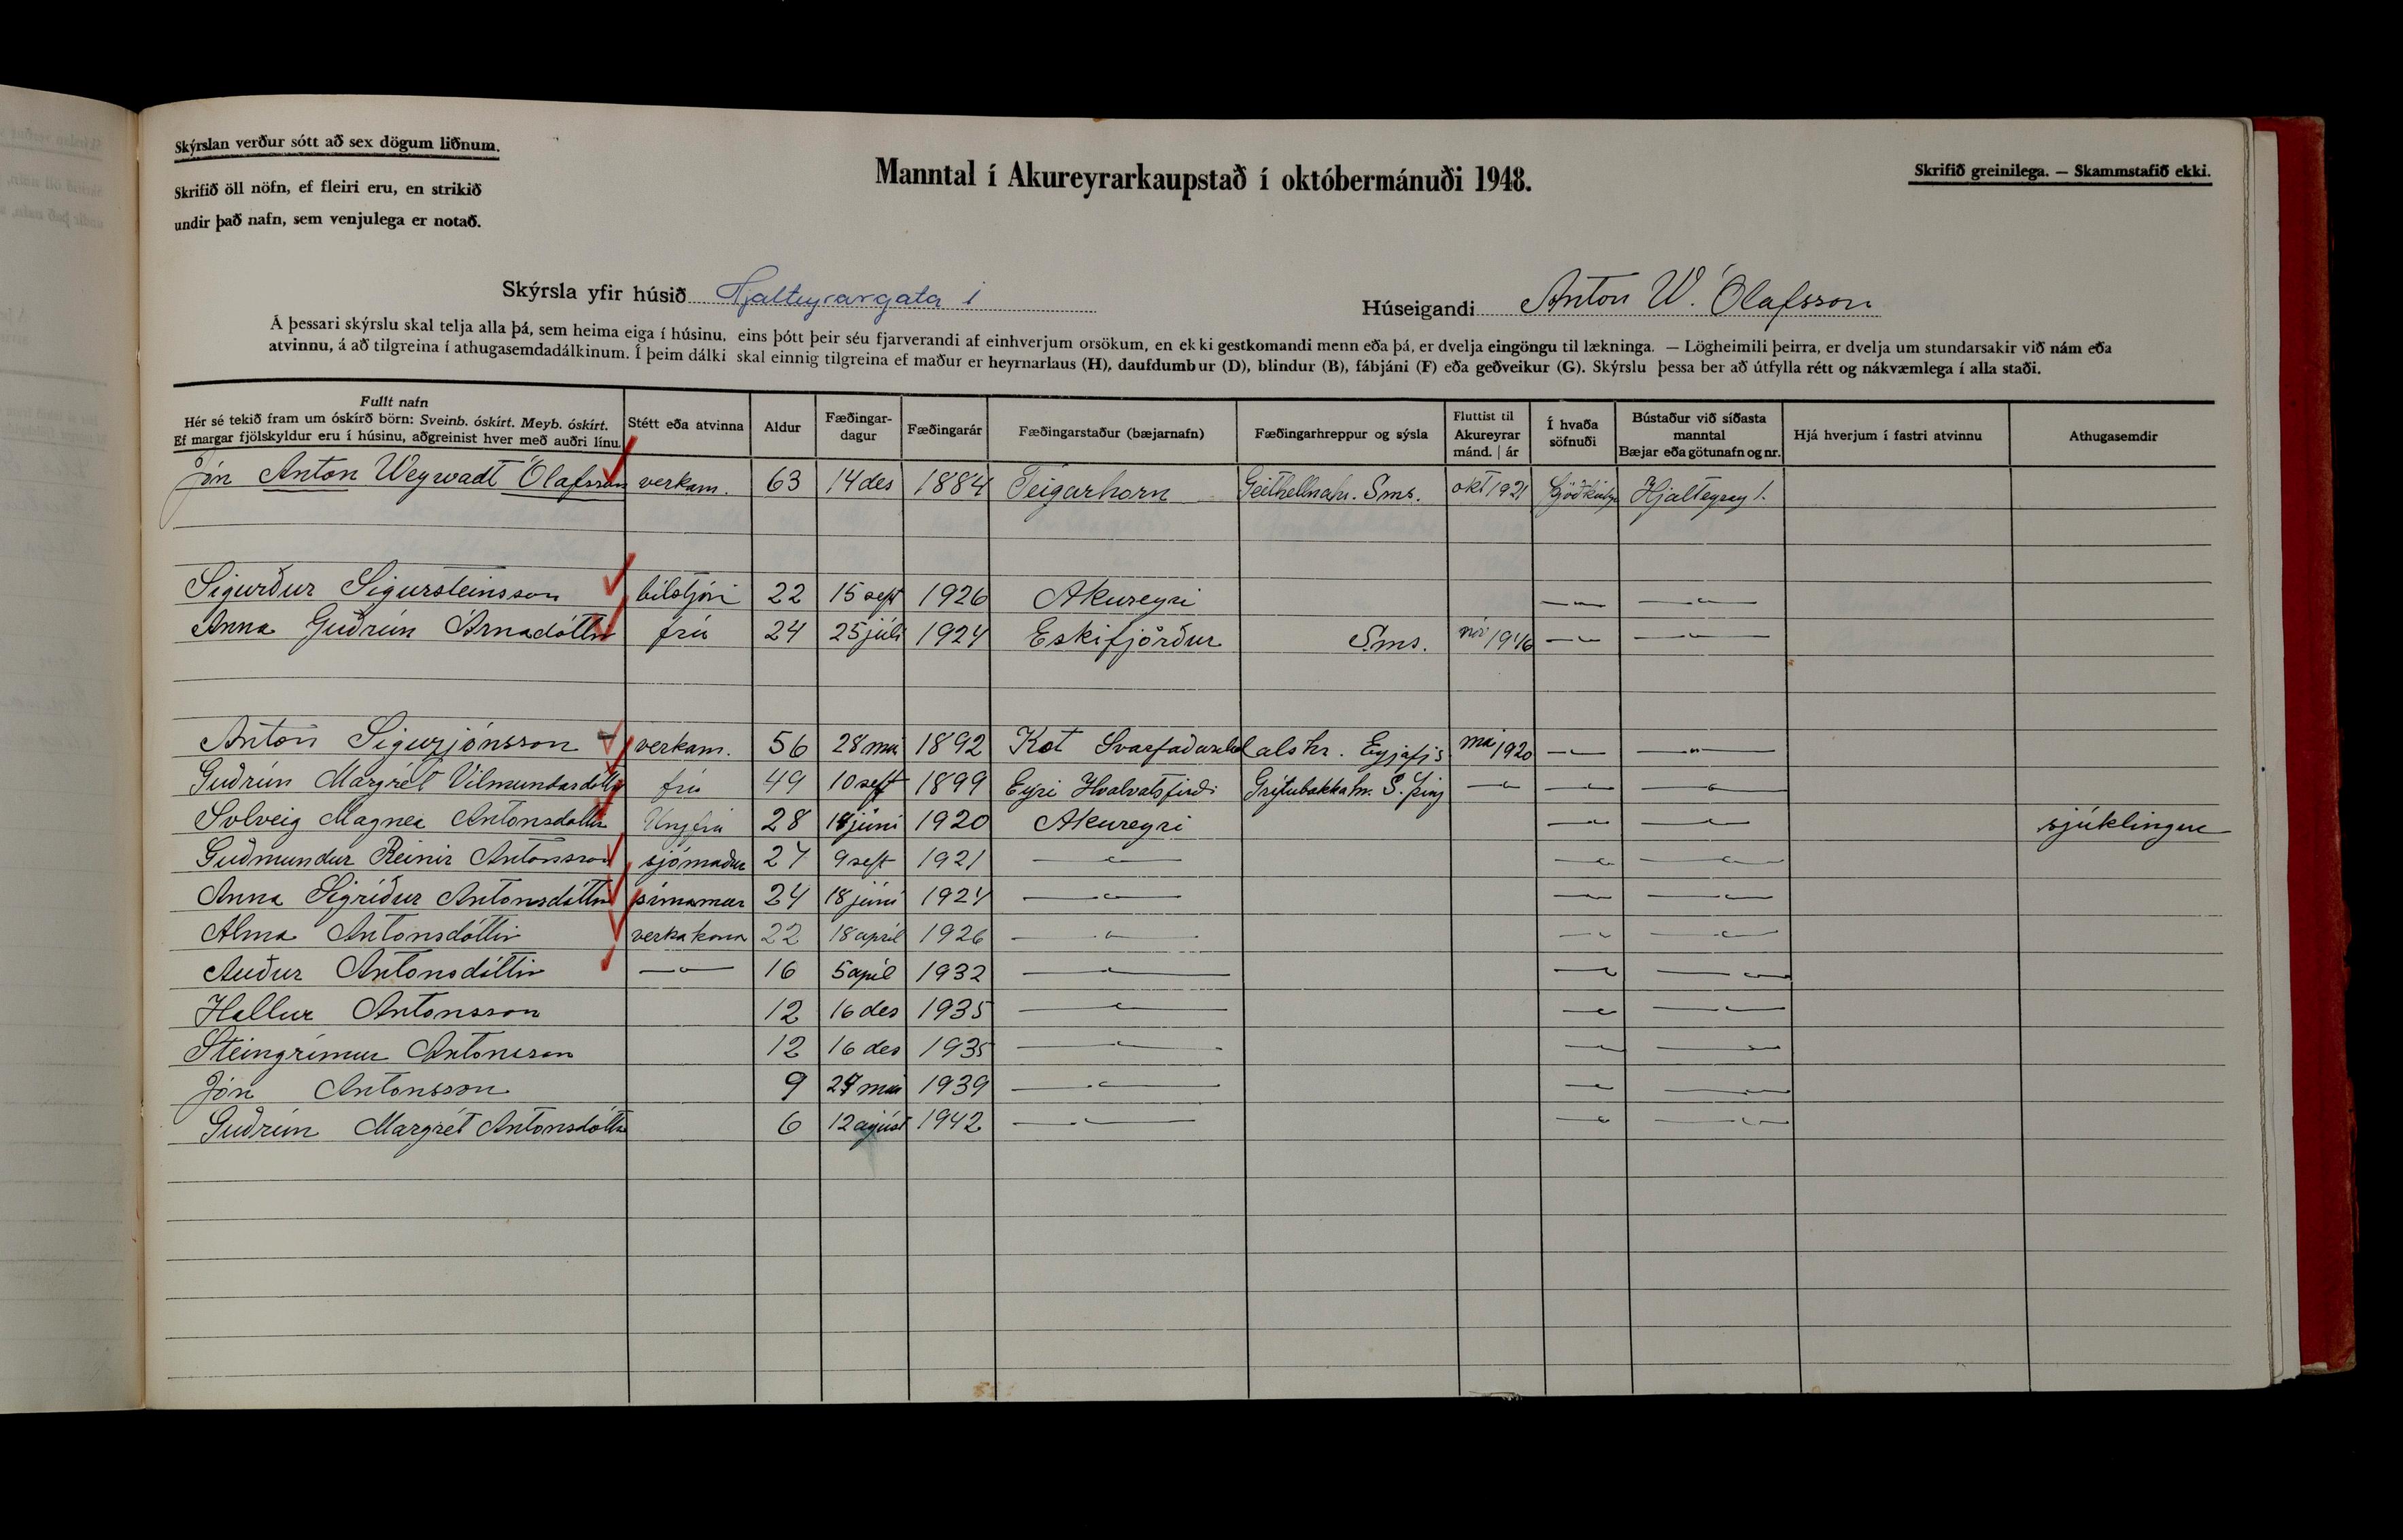 Skýrslan verður sótt að sex dögum liðnum.
Skrifið öll nöfn, ef fleiri eru, en strikið
undir það nafn, sem venjulega er notað.
Manntal í Akureyrarkaupstað í októbermánuði 1948.
Skrifið greinilega. — Skammstafið ekki.
Skýrsla yfir húsið Hjalteyrargata 1
Húseigandi Anton W. Ólafsson
Á þessari skýrslu skal telja alla þá, sem heima eiga í húsinu, eins þótt þeir séu fjarverandi af einhverjum orsökum, en ekki gestkomandi menn eða þá, er dvelja eingöngu til lækninga. — Lögheimili þeirra, er dvelja um stundarsakir við nám eða
atvinnu, á að tilgreina í athugasemdadálkinum. Í þeim dálki skal einnig tilgreina ef maður er heyrnarlaus (H), daufdumbur (D), blindur (B), fábjáni (F) eða geðveikur (G). Skýrslu þessa ber að útfylla rétt og nákvæmlega í alla staði.
Fullt nafn
Hér sé tekið fram um óskírð börn: Sveinb. óskírt. Meyb. óskírt.
Ef margar fjölskyldur eru í húsinu, aðgreinist hver með auðri línu.
Stétt eða atvinna
Aldur
Fæðingar-
dagur
Fæðingarár
Fæðingarstaður (bæjarnafn)
Fæðingarhreppur og sýsla
Fluttist til
Akureyrar
mánd. | ár
Í hvaða
söfnuði
Bústaður við síðasta
manntal
Bæjar eða götunafn og nr.
Hjá hverjum í fastri atvinnu
Athugasemdir
Jón Anton Weywadt Ólafsson verkam. 63 14 des 1884 Teigarhorn Geithellnahr. Sms. okt 1921 Þjóðkirkju Hjalteyrarg 1.
Sigurður Sigursteinsson bílstjóri 22 15 sept 1926 Akureyri — " — — " —
Anna Guðrún Árnadóttir frú 24 25 júlí 1924 Eskifjörður Sms. nóv 1946 — " — — " —
Anton Sigurjónsson verkam. 56 28 maí 1892 Kot Svarfaðardalshr. Eyjafjs maí 1920 — " — — " —
Guðrún Margrét Vilmundardóttir frú 49 10 sept 1899 Eyri Hvalvatsfirði Grýtubakkahr. S. þing — " — — " — — " —
Sólveig Magnea Antonsdóttir Ungfrú 28 18 júní 1920 Akureyri — " — — " — sjúklingur
Guðmundur Reinir Antonsson sjómaður 27 9 sept 1921 — " — — " — — " —
Anna Sigríður Antonsdóttir símamær 24 18 júní 1924 — " — — " — — " —
Alma Antonsdóttir verkakona 22 18 apríl 1926 — " — — " — — " —
Auður Antonsdóttir — " — 16 5 apríl 1932 — " — — " — — " —
Hallur Antonsson 12 16 des 1935 — " — — " — — " —
Steingrímur Antonsson 12 16 des 1935 — " — — " — — " —
Jón Antonsson 9 maí 1939 — " — — " — — " —
Guðrún Margrét Antonsdóttir 6 12 ágúst 1942 — " — — " — — " —